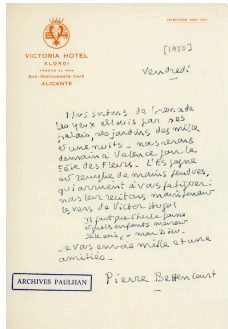 VICTORIA HOTEL
ELORDI
FRENTE AL MAR
BAR-RESTAURANTE-CAFÉ
ALICANTE
[1950]
Vendredi
Nous sortons de Grenade
les yeux éblouis par ses
palais, ses jardins des mille
et une nuits - nous serons
demain à Valence pour la
Fête des Fleurs. L'Espagne
est remplie de mains tendues,
qui arrivent à vous fatiguer.
nous leur récitons maintenant
les vers de Victor Hugo
Il faut que l'herbe
et que les enfants meurent
mon Dieu.
Je vous envoie mille et une
amitiés.
Pierre Bettencourt
ARCHIVES PAULHAN